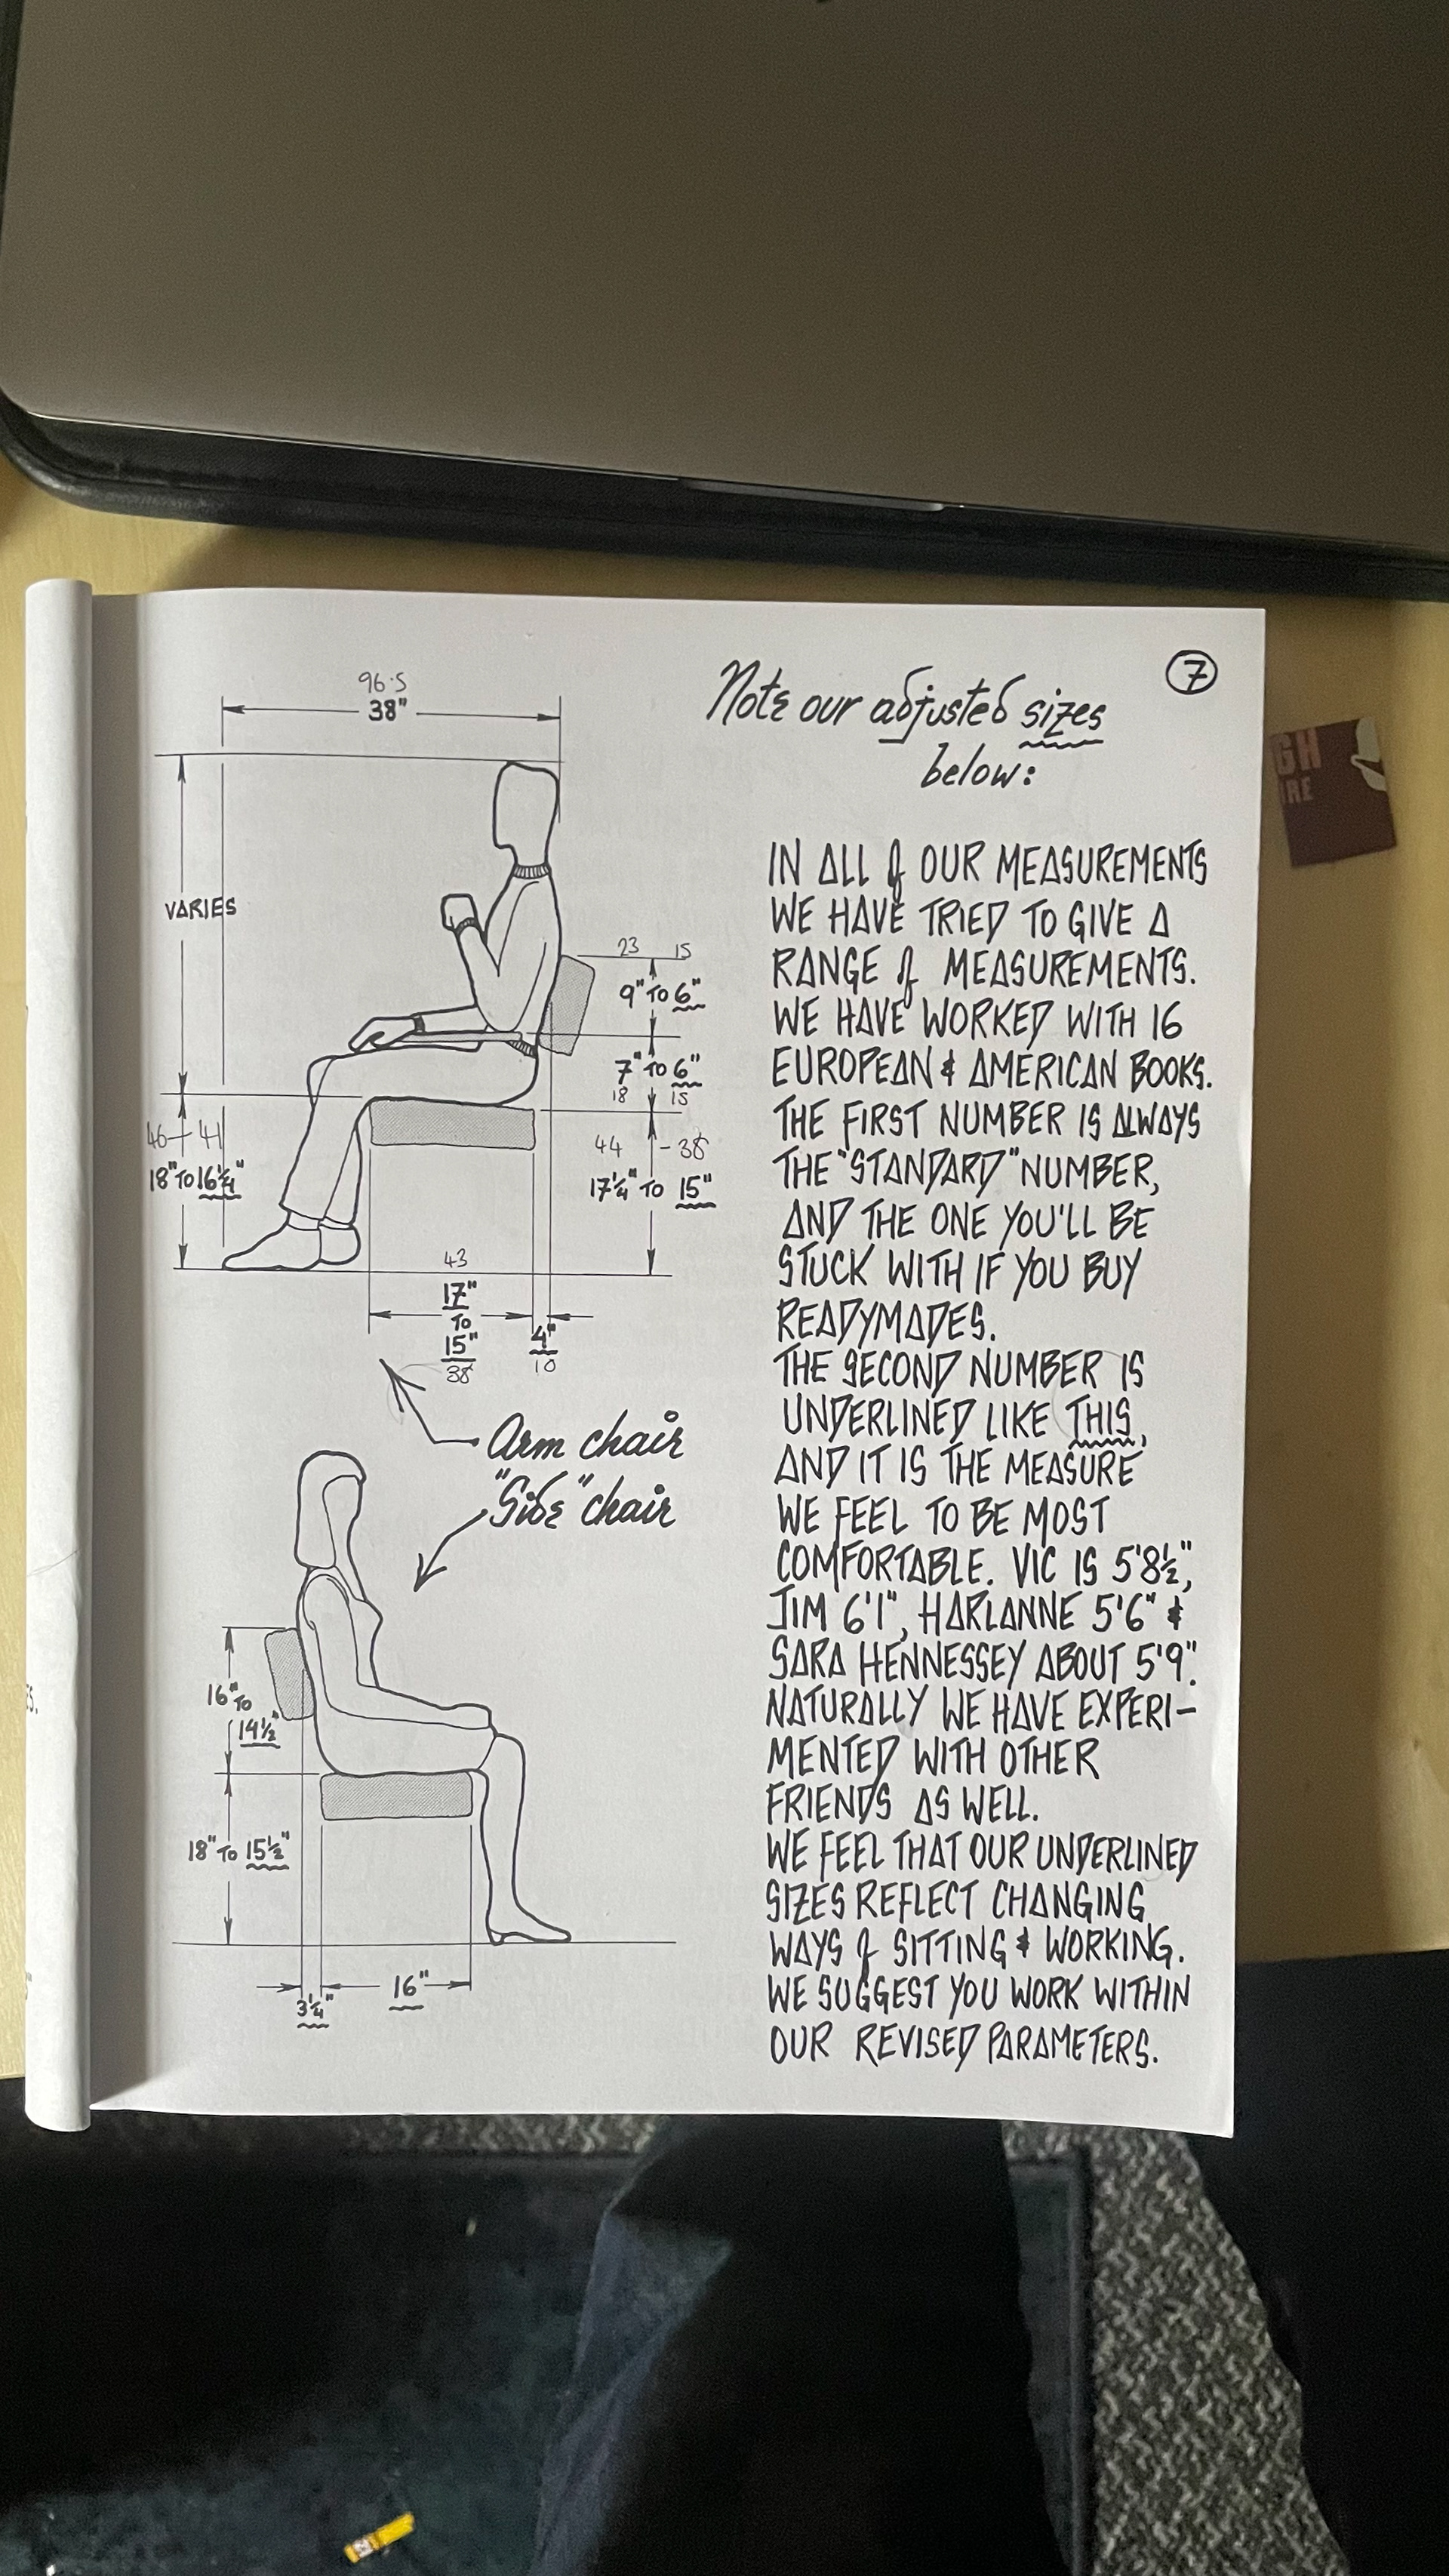 7
Note our adjusted sizes
below:
IN ALL of OUR MEASUREMENTS
WE HAVE TRIED TO GIVE A
RANGE of MEASUREMENTS.
WE HAVE WORKED WITH 16
EUROPEAN & AMERICAN BOOKS.
THE FIRST NUMBER IS ALWAYS
THE "STANDARD" NUMBER,
AND THE ONE YOU'LL BE
STUCK WITH IF YOU BUY
READYMADES.
THE SECOND NUMBER IS
UNDERLINED LIKE THIS,
AND IT IS THE MEASURE
WE FEEL TO BE MOST
COMFORTABLE. VIC IS 5'8½",
JIM 6'1", HARLANNE 5'6" &
SARA HENNESSEY ABOUT 5'9".
NATURALLY WE HAVE EXPERI-
MENTED WITH OTHER
FRIENDS AS WELL.
WE FEEL THAT OUR UNDERLINED
SIZES REFLECT CHANGING
WAYS of SITTING & WORKING.
WE SUGGEST YOU WORK WITHIN
OUR REVISED PARAMETERS.
96.5
38"
VARIES
23 15
9" TO 6"
7" TO 6"
18 15
46 - 41
18" TO 16¼"
44 - 38
17¼" TO 15"
43
17"
TO
15"
38
4"
10
Arm chair
"Side" chair
16" TO
14½"
18" TO 15½"
3¼"
16"
GH
IRE